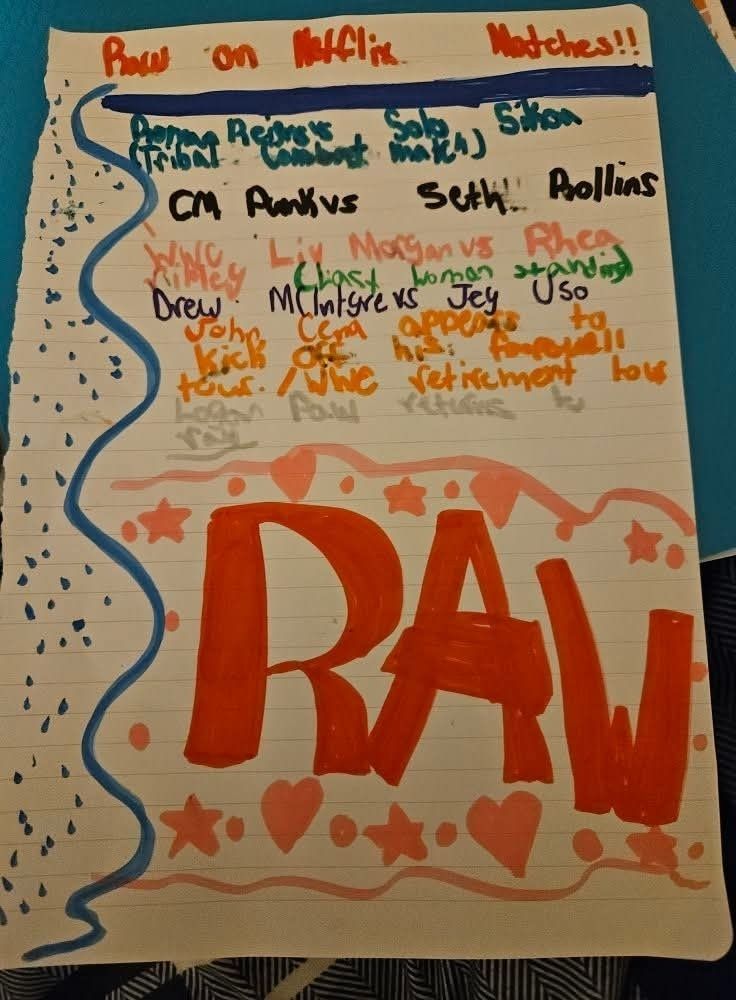 Raw on Netflix Matches!!
Roman Reigns vs Solo Sikoa
(Tribal Combat match)
CM Punk vs Seth Rollins
WWE Liv Morgan vs Rhea
Ripley (Last Woman standing)
Drew McIntyre vs Jey Uso
John Cena appears to
kick off his farewell
tour. / WWE retirement tour
Logan Paul returns to
RAW